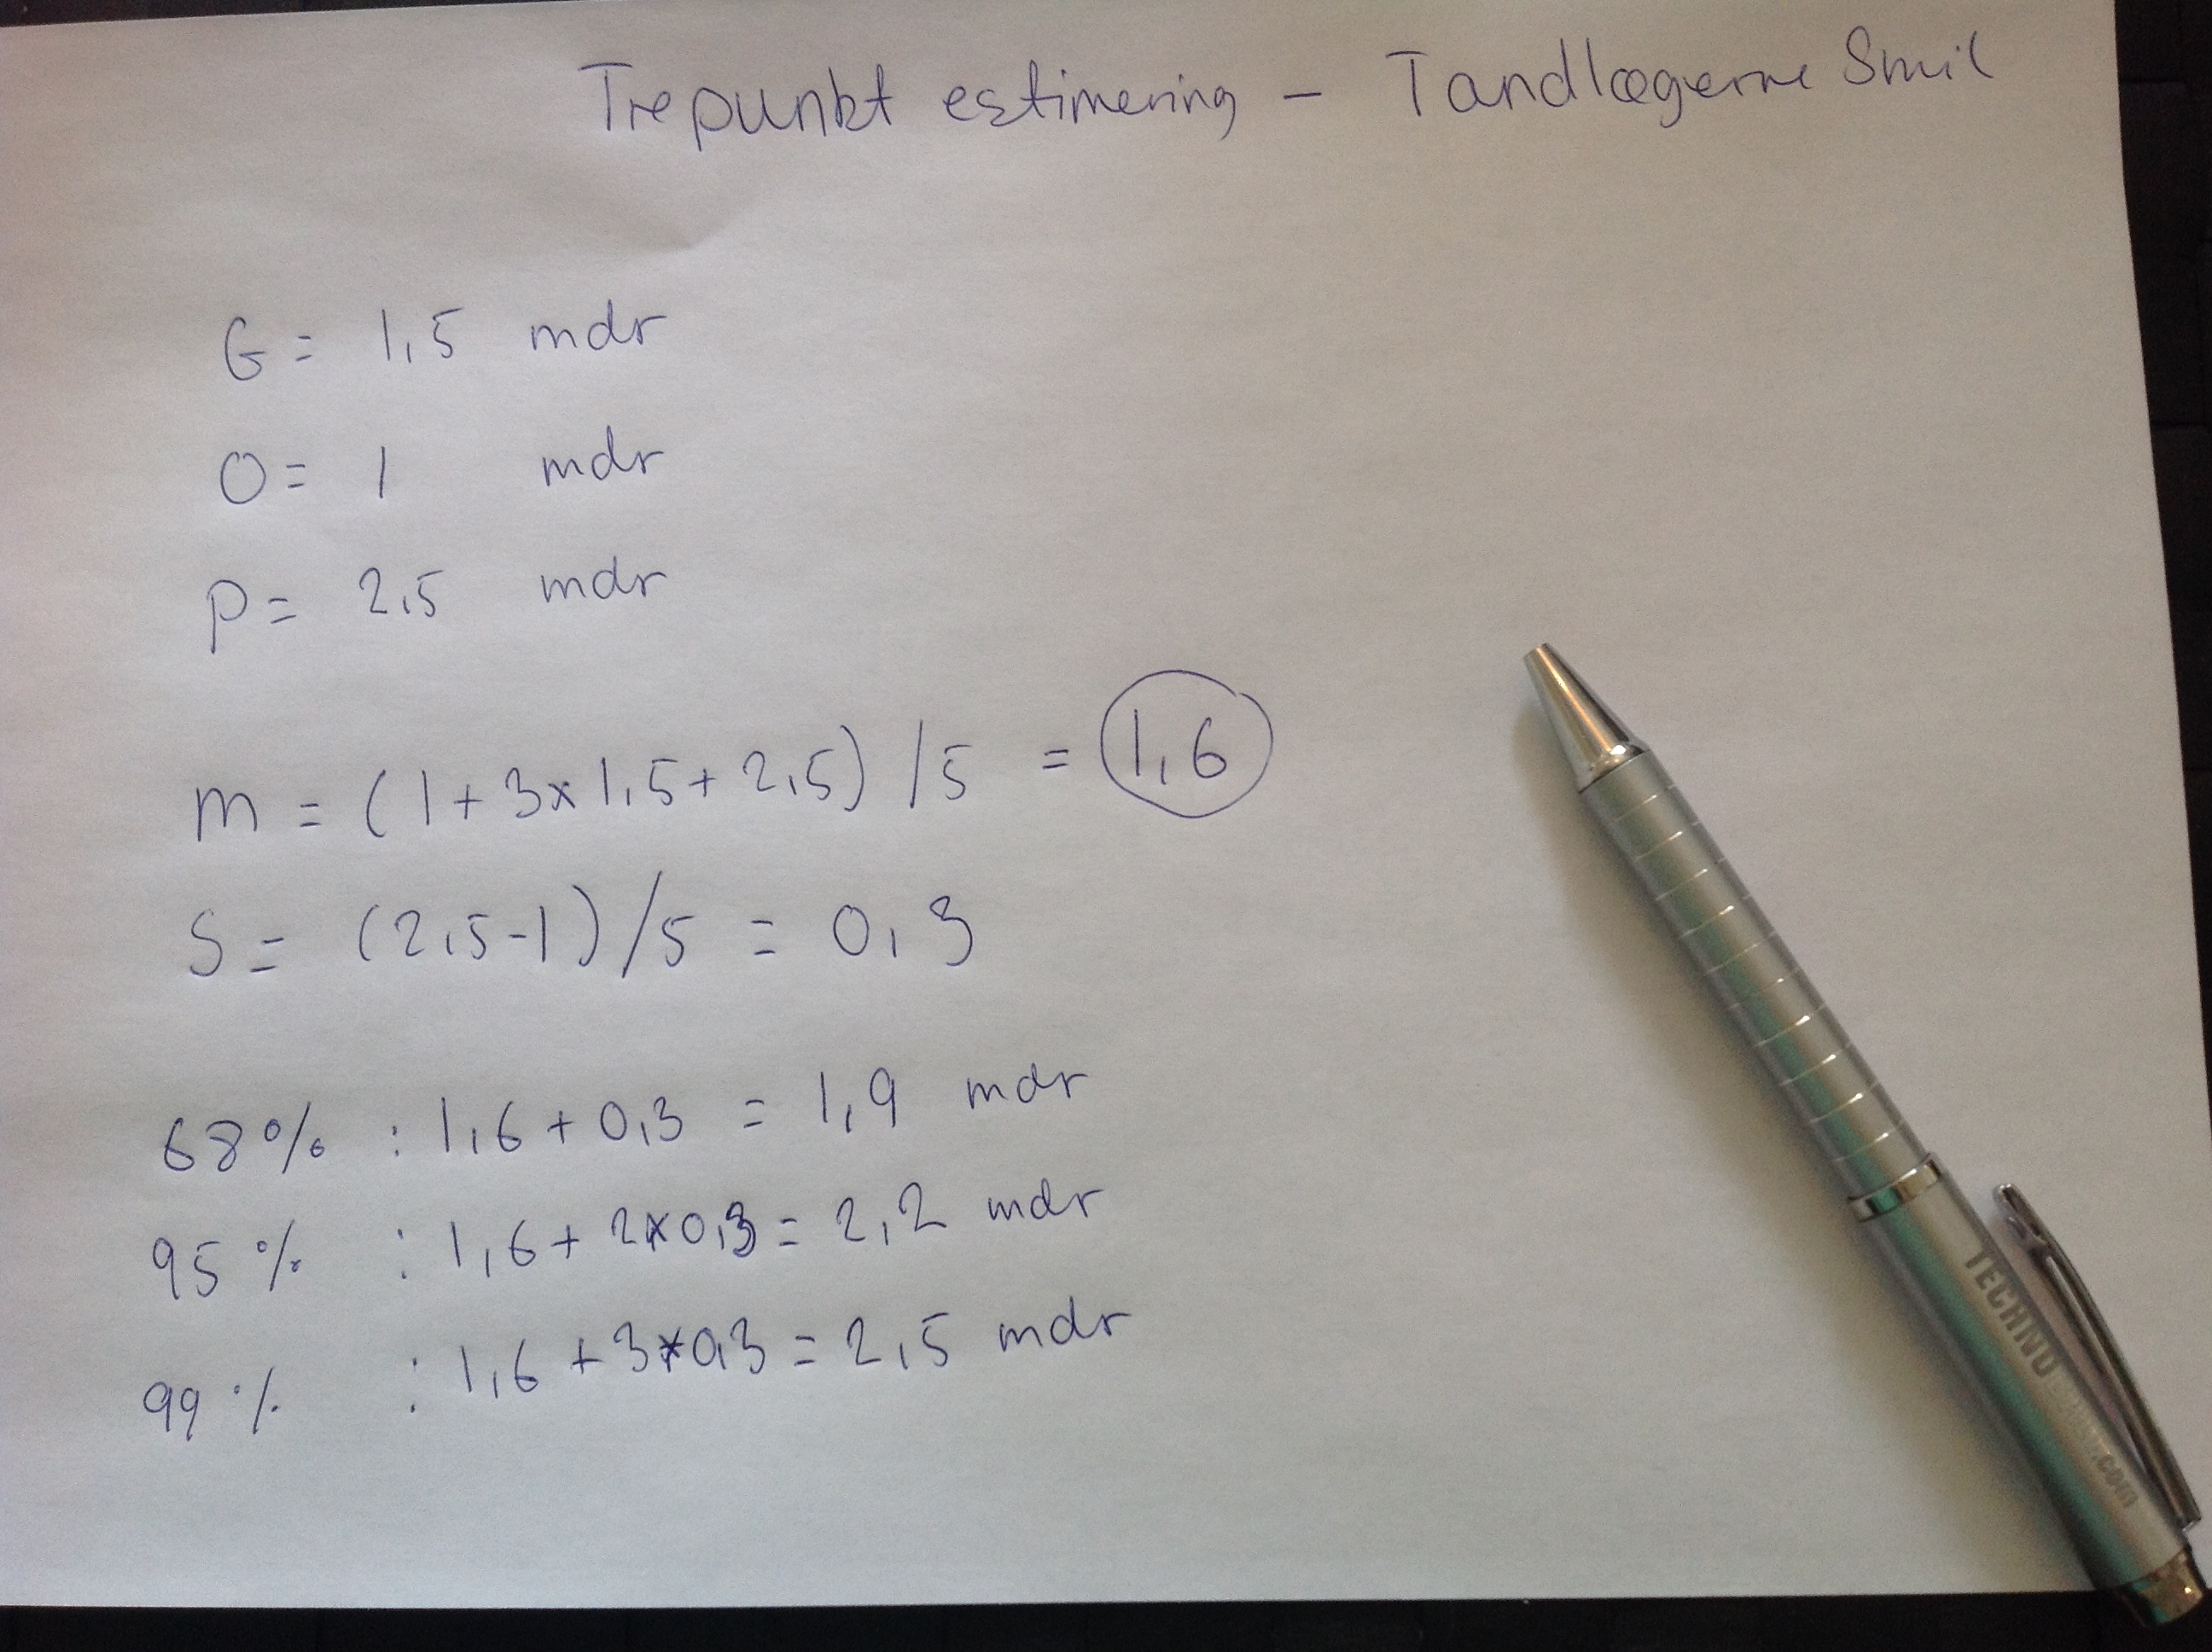 Trepunkt estimering - Tandlægerne Smil
G = 1,5 mdr
O = 1 mdr
P = 2,5 mdr
m = (1 + 3 x 1,5 + 2,5) / 5 = 1,6
S = (2,5 - 1) / 5 = 0,3
68% : 1,6 + 0,3 = 1,9 mdr
95% : 1,6 + 2x0,3 = 2,2 mdr
99% : 1,6 + 3*0,3 = 2,5 mdr
TECHNO